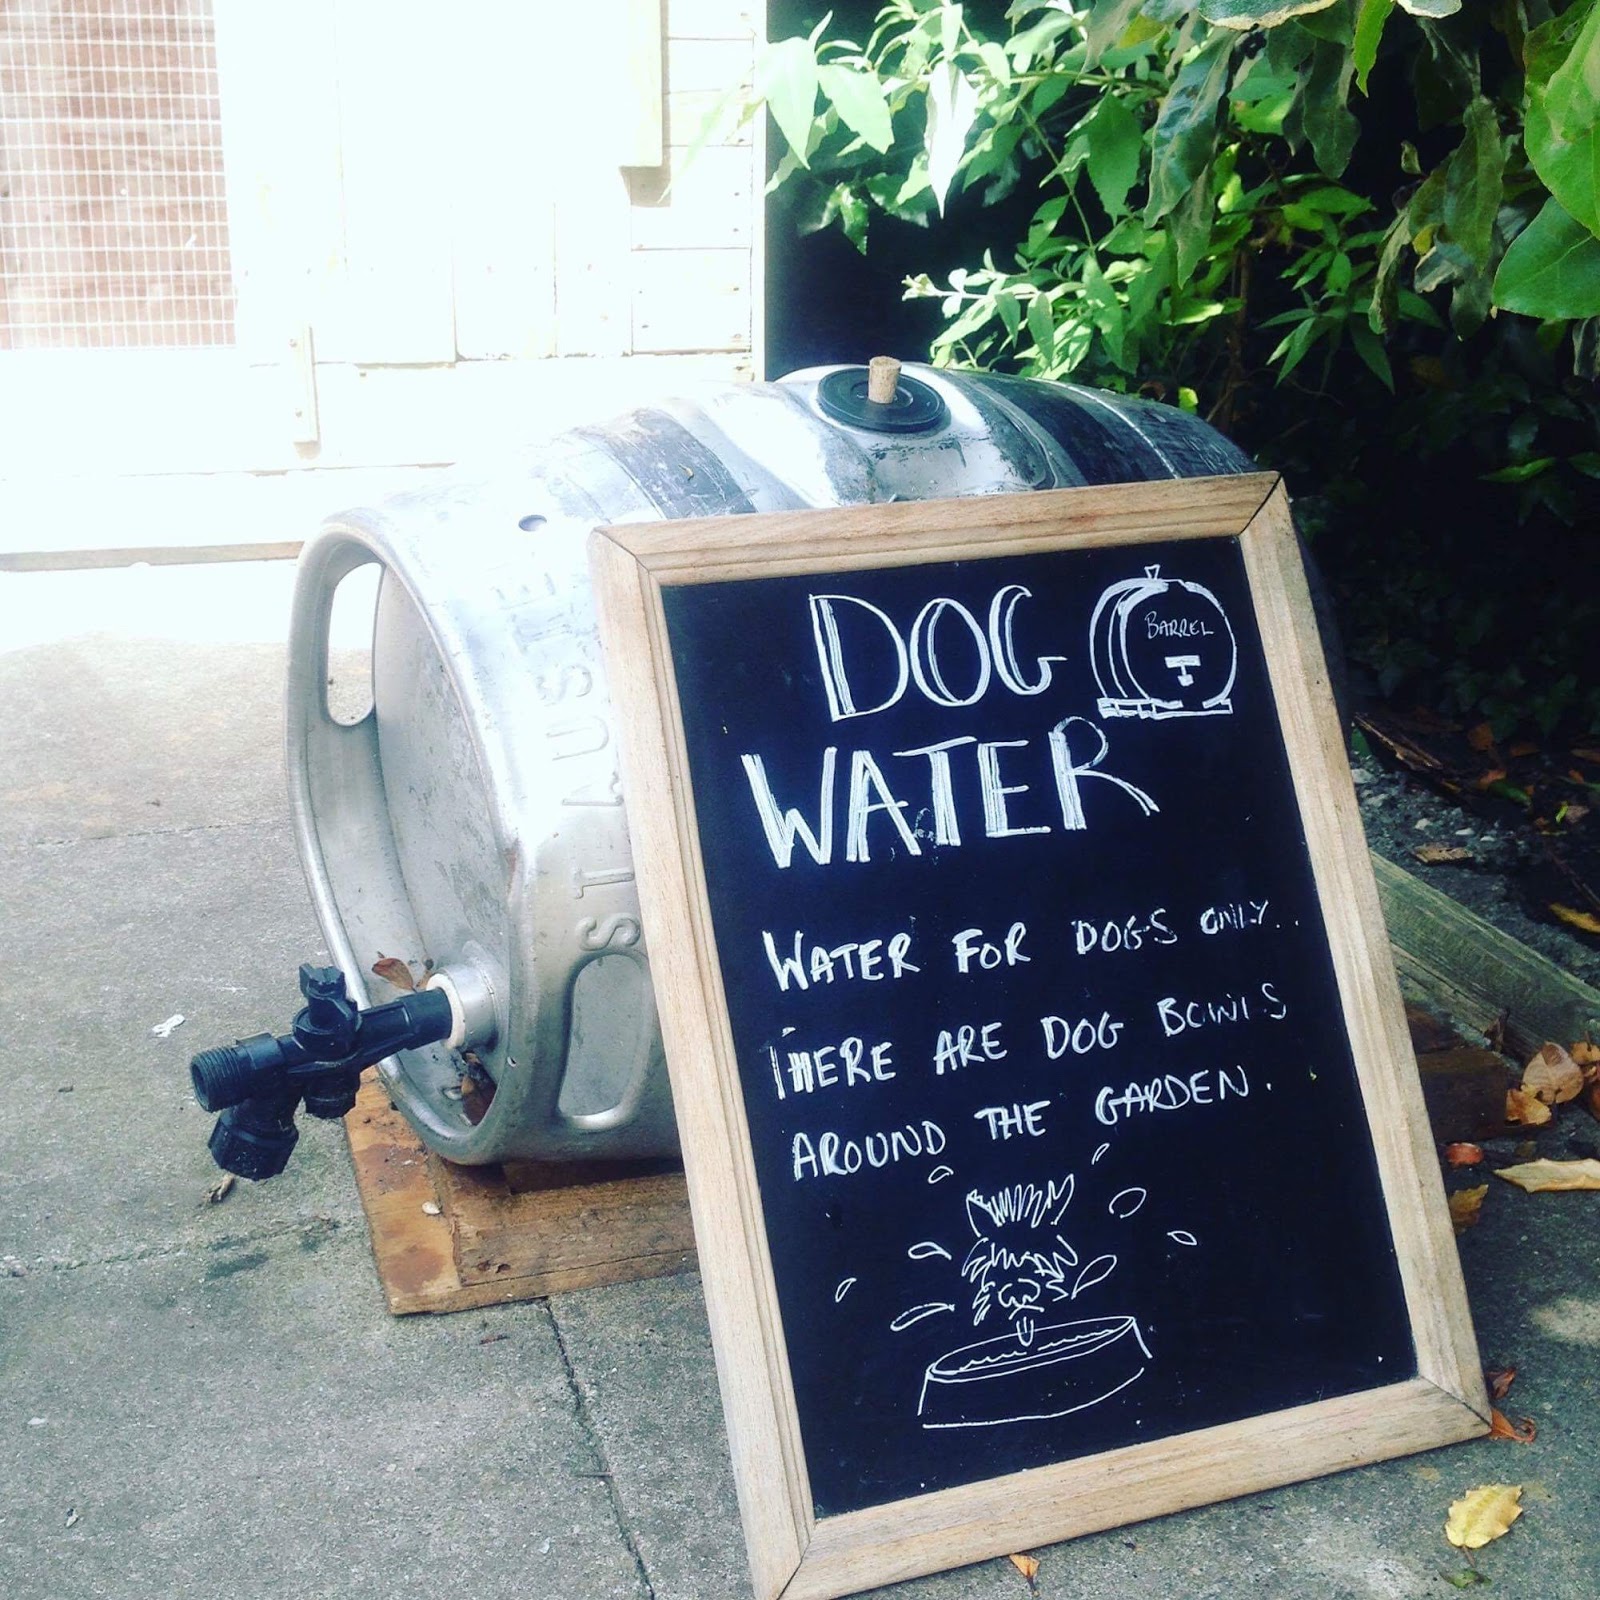 DOG
BARREL
WATER
WATER FOR DOGS ONLY..
THERE ARE DOG BOWLS
AROUND THE GARDEN.
ST AUSTE